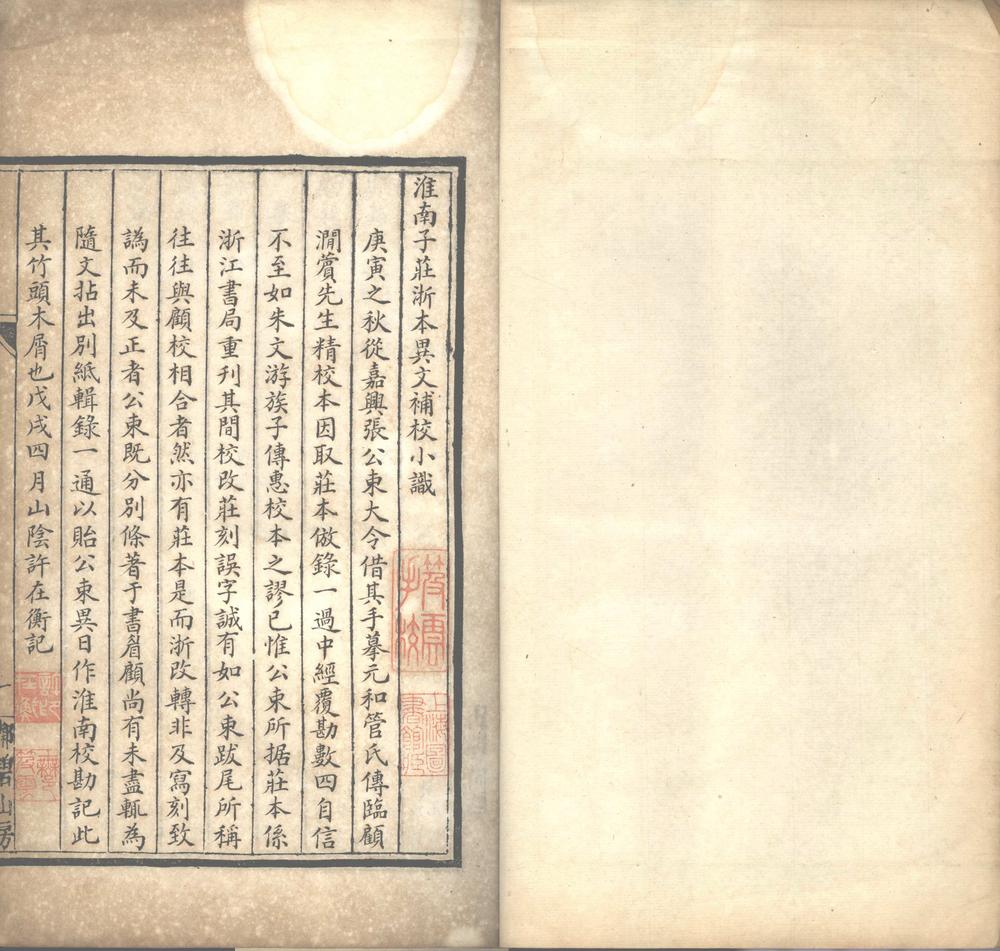 淮南子莊浙本異文補校小識
庚寅之秋從嘉興張公束大令借其手摹元和管氏傳臨顧
澗薲先生精校本因取莊本倣錄一過中經覆勘數四自信
不至如朱文游族子傳惠校本之謬已惟公束所據莊本係
浙江書局重刊其間校改莊刻誤字誠有如公束跋尾所稱
往往與顧校相合者然亦有莊本是而浙改轉非及寫刻致
譌而未及正者公束既分別條著于書眉顧尚有未盡輒為
隨文拈出別紙輯錄一通以貽公束異日作淮南校勘記此
其竹頭木屑也戊戌四月山陰許在衡記
上海圖書館所